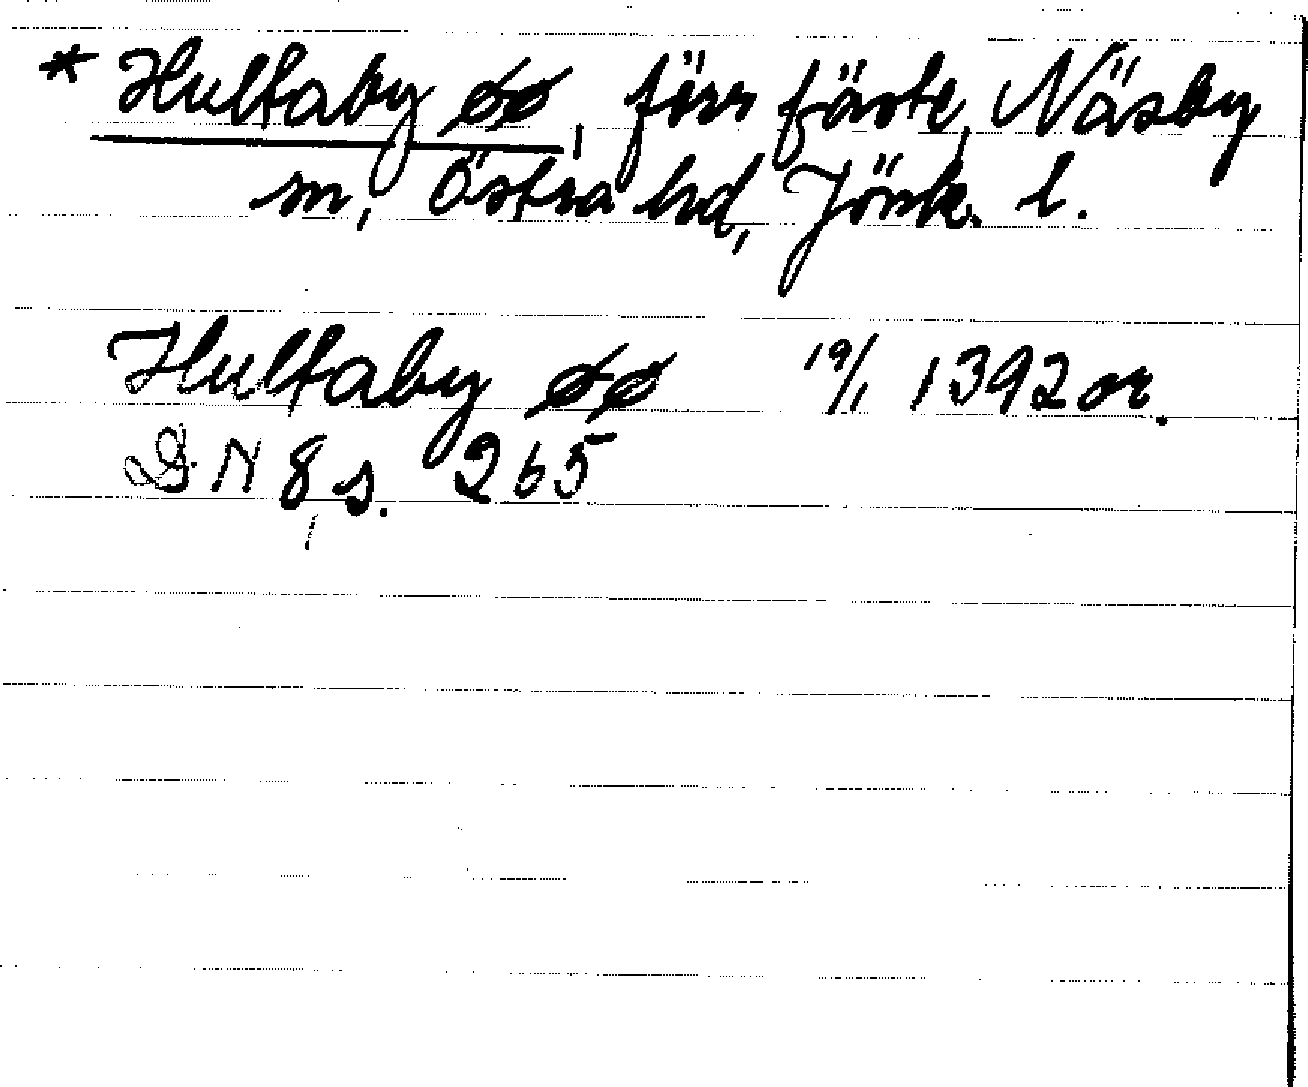 * Hultaby øø, förr fäste, Näsby
sn, Östra hd, Jönk. l.
Hultaby øø 19/1 1392 or.
DN 8, s. 265